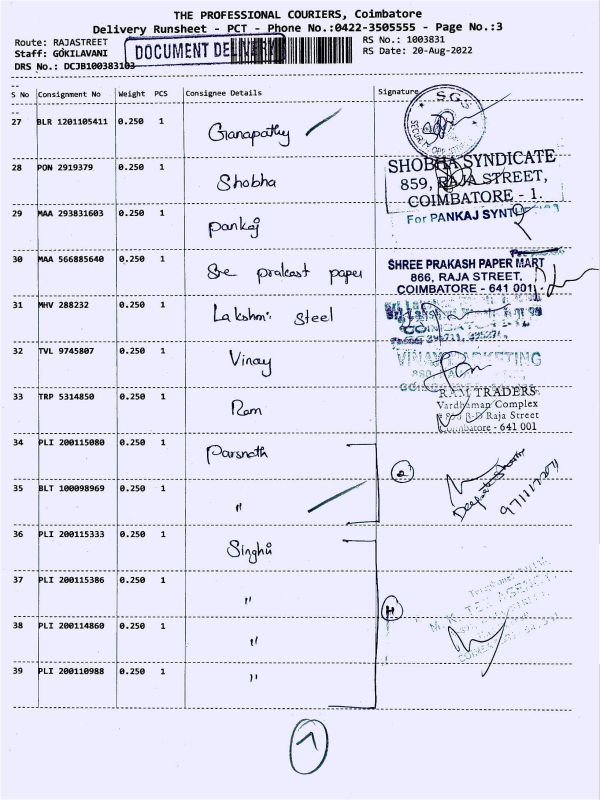 THE PROFESSIONAL COURIERS, Coimbatore
Delivery Runsheet - PCT - Phone No.:0422-3505555 - Page No.:3
Route: RAJASTREET
RS No.: 1003831
Staff: GOKILAVANI
DOCUMENT DELIVERY
RS Date: 20-Aug-2022
DRS No.: DCJB100383103
S No Consignment No Weight PCS Consignee Details Signature
27 BLR 1201105411 0.250 1 Ganapathy
S.G.S
28 PON 2919379 0.250 1 Shobha
SHOBHA SYNDICATE
859, RAJA STREET,
COIMBATORE - 1.
29 MAA 293831603 0.250 1 Pankaj
For PANKAJ
30 MAA 566885640 0.250 1 Sre prakast paper
SHREE PRAKASH PAPER MART
866, RAJA STREET,
COIMBATORE - 641 001.
31 MHV 288232 0.250 1 Lakshmi Steel
32 TVL 9745807 0.250 1 Vinay
33 TRP 5314850 0.250 1 Ram
RAM TRADERS
Vardhaman Complex
Raja Street
- 641 001
34 PLI 200115080 0.250 1 Parsnath
2
35 BLT 100098969 0.250 1 "
36 PLI 200115333 0.250 1 Singhvi
37 PLI 200115386 0.250 1 "
4
M. K. TEX AGENCY
38 PLI 200114860 0.250 1 "
39 PLI 200110988 0.250 1 "
7